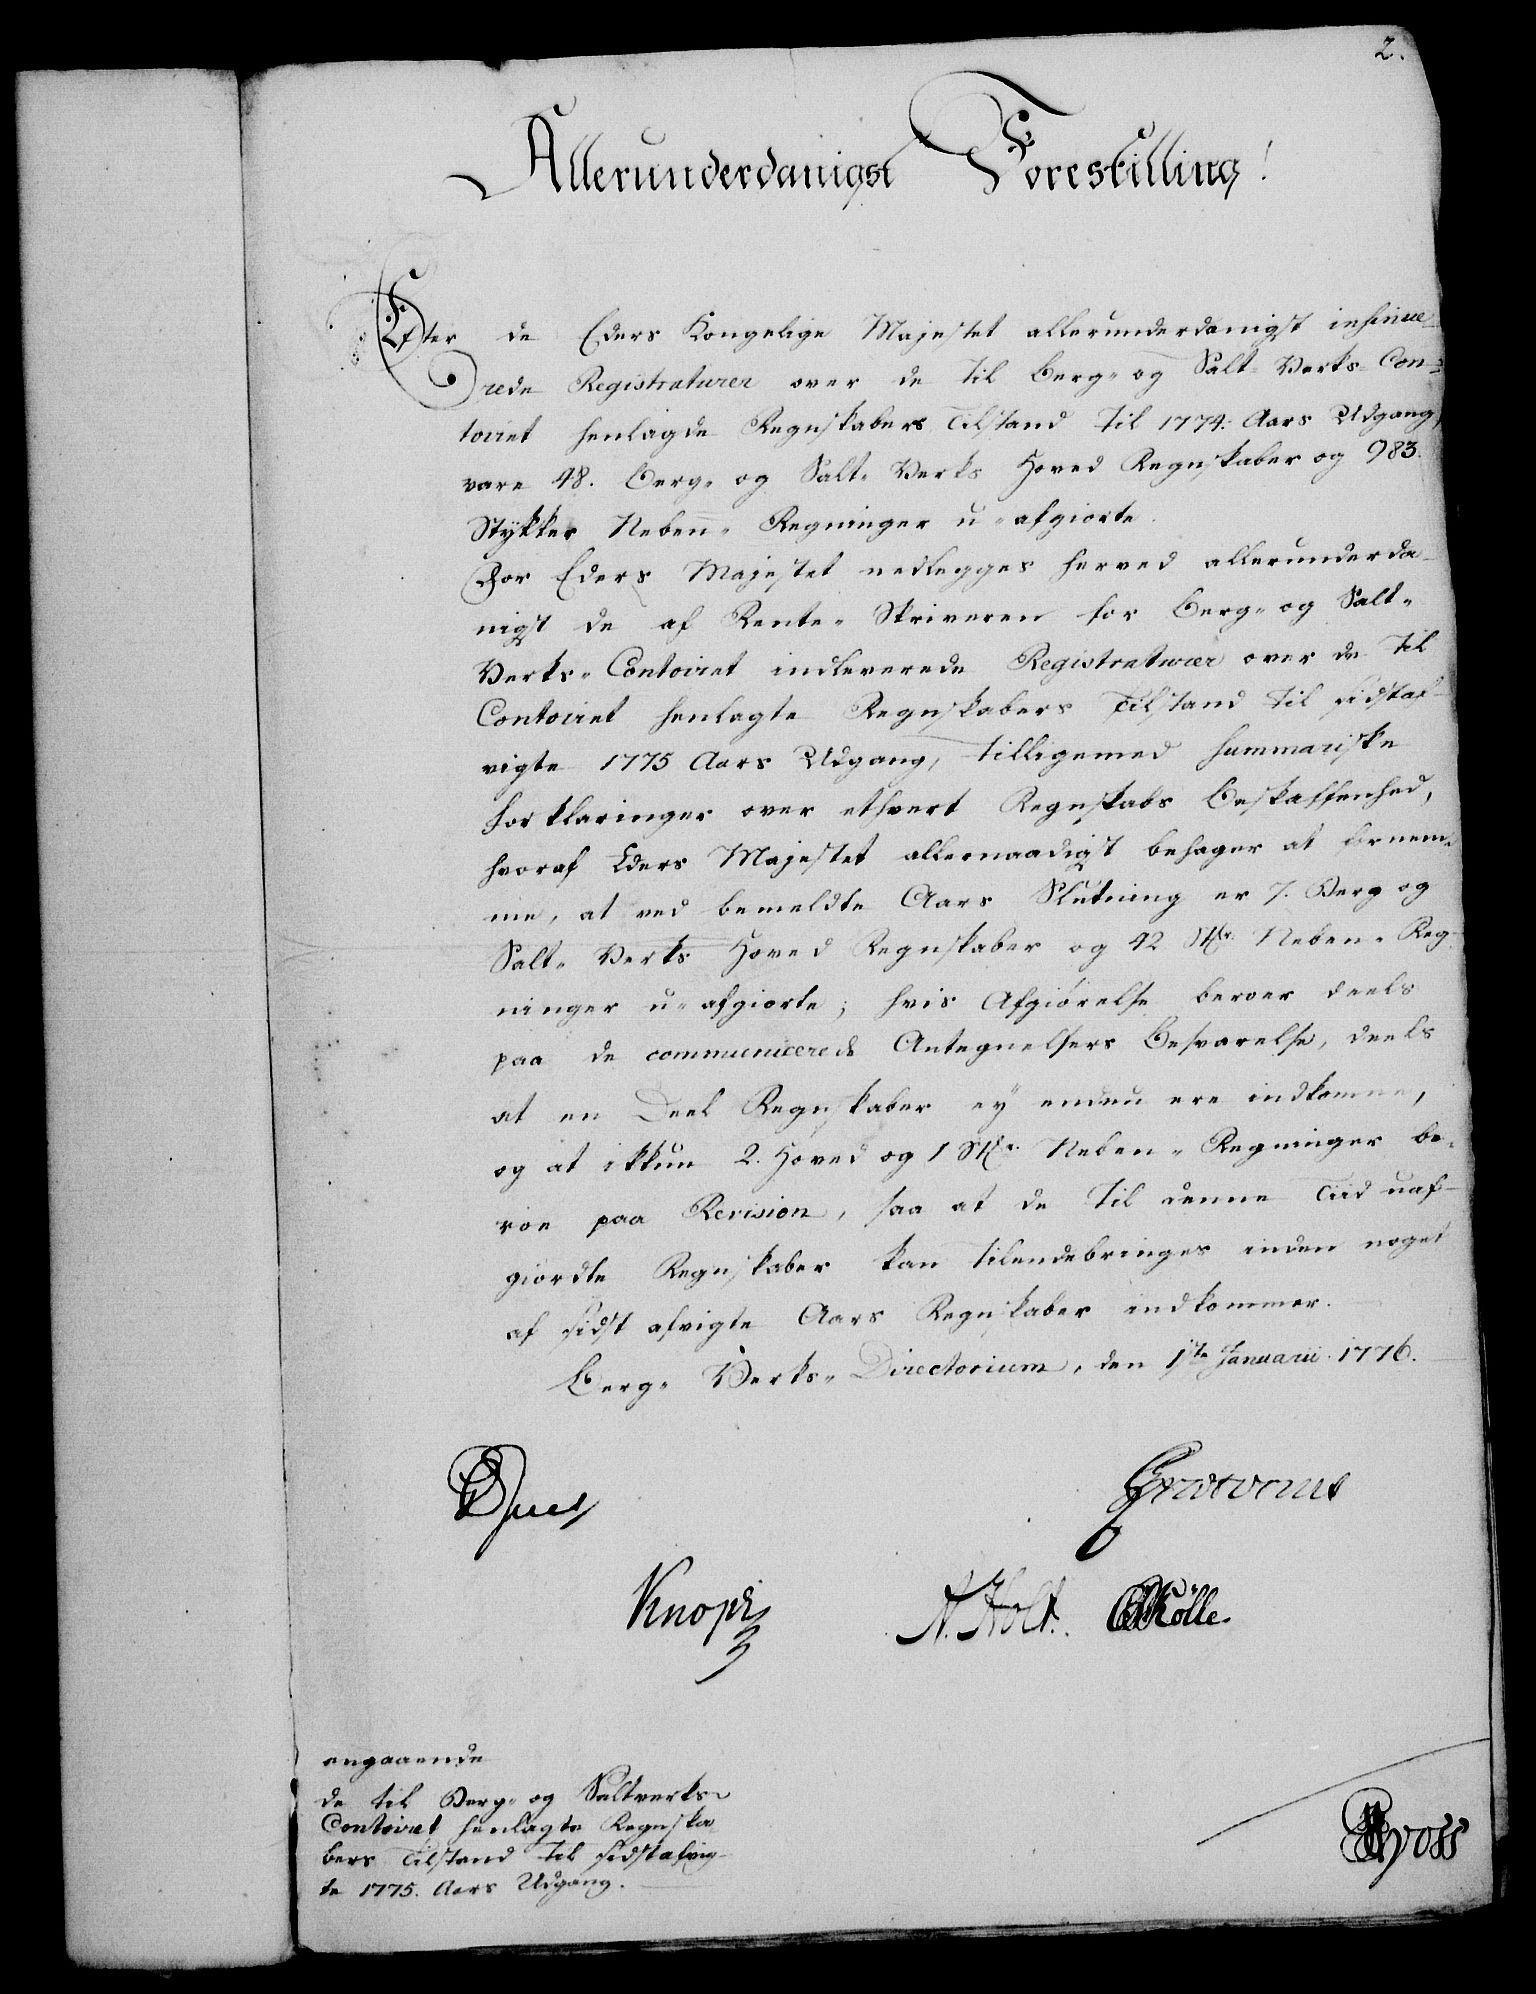 2.
Allerunderdanigst Forestilling!
Efter de Eders Kongelige Majestet allerunderdanigst insinue-
rede Registraturer over de til Berg- og Salt-Verks-Con-
toiret henlagde Regnskabers Tilstand til 1774. Aars Udgang,
vare 48. Berg- og Salt-Verks Hoved Regnskaber og 983.
Stykker Neben-Regninger u-afgiorte.
For Eders Majestet nedlegges herved allerunderda-
nigst de af Rente-Skriveren for Berg- og Salt-
Verks-Contoiret indleverede Registraturer over de til
Contoiret henlagte Regnskabers Tilstand til sidstaf-
vigte 1775 Aars Udgang, tilligemed summariske
Forklaringer over ethvert Regnskabs Beskaffenhed,
hvoraf Eders Majestet allernaadigst behager at fornem-
me, at ved bemeldte Aars Slutning er 7. Berg og
Salt-Verks Hoved Regnskaber og 42 Stkr. Neben-Reg-
ninger u-afgiorte; hvis Afgiörelse beroer deels
paa de communicerede Antegnelsers Besvarelse, deels
at en Deel Regnskaber ey endnu ere indkomne,
og at ikkun 2. Hoved og 1 Stkr. Neben-Regninger be-
roe paa Revision, saa at de til denne Tiid uaf-
giordte Regnskaber kan tilendebringes inden noget
af sidst afvigte Aars Regnskaber indkommer.
Berg-Verks-Directorium, den 1ste Januarii 1776.
Juel
Knopf
A. Holt.
Kölle.
angaaende
de til Berg- og Saltverks-
Contoiret henlagte Regnska
bers Tilstand til sidstafvig-
te 1775. Aars Udgang.